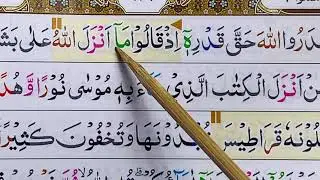 دَرُوا اللّٰهَ حَقَّ قَدْرِهٖٓ اِذْ قَالُوْا مَآ اَنْزَلَ اللّٰهُ عَلٰى بَشَ
نْ اَنْزَلَ الْكِتٰبَ الَّذِيْ جَآءَ بِهٖ مُوْسٰى نُوْرًا وَّهُدً
لُوْنَهٗ قَرَاطِيْسَ تُبْدُوْنَهَا وَتُخْفُوْنَ كَثِيْرًا